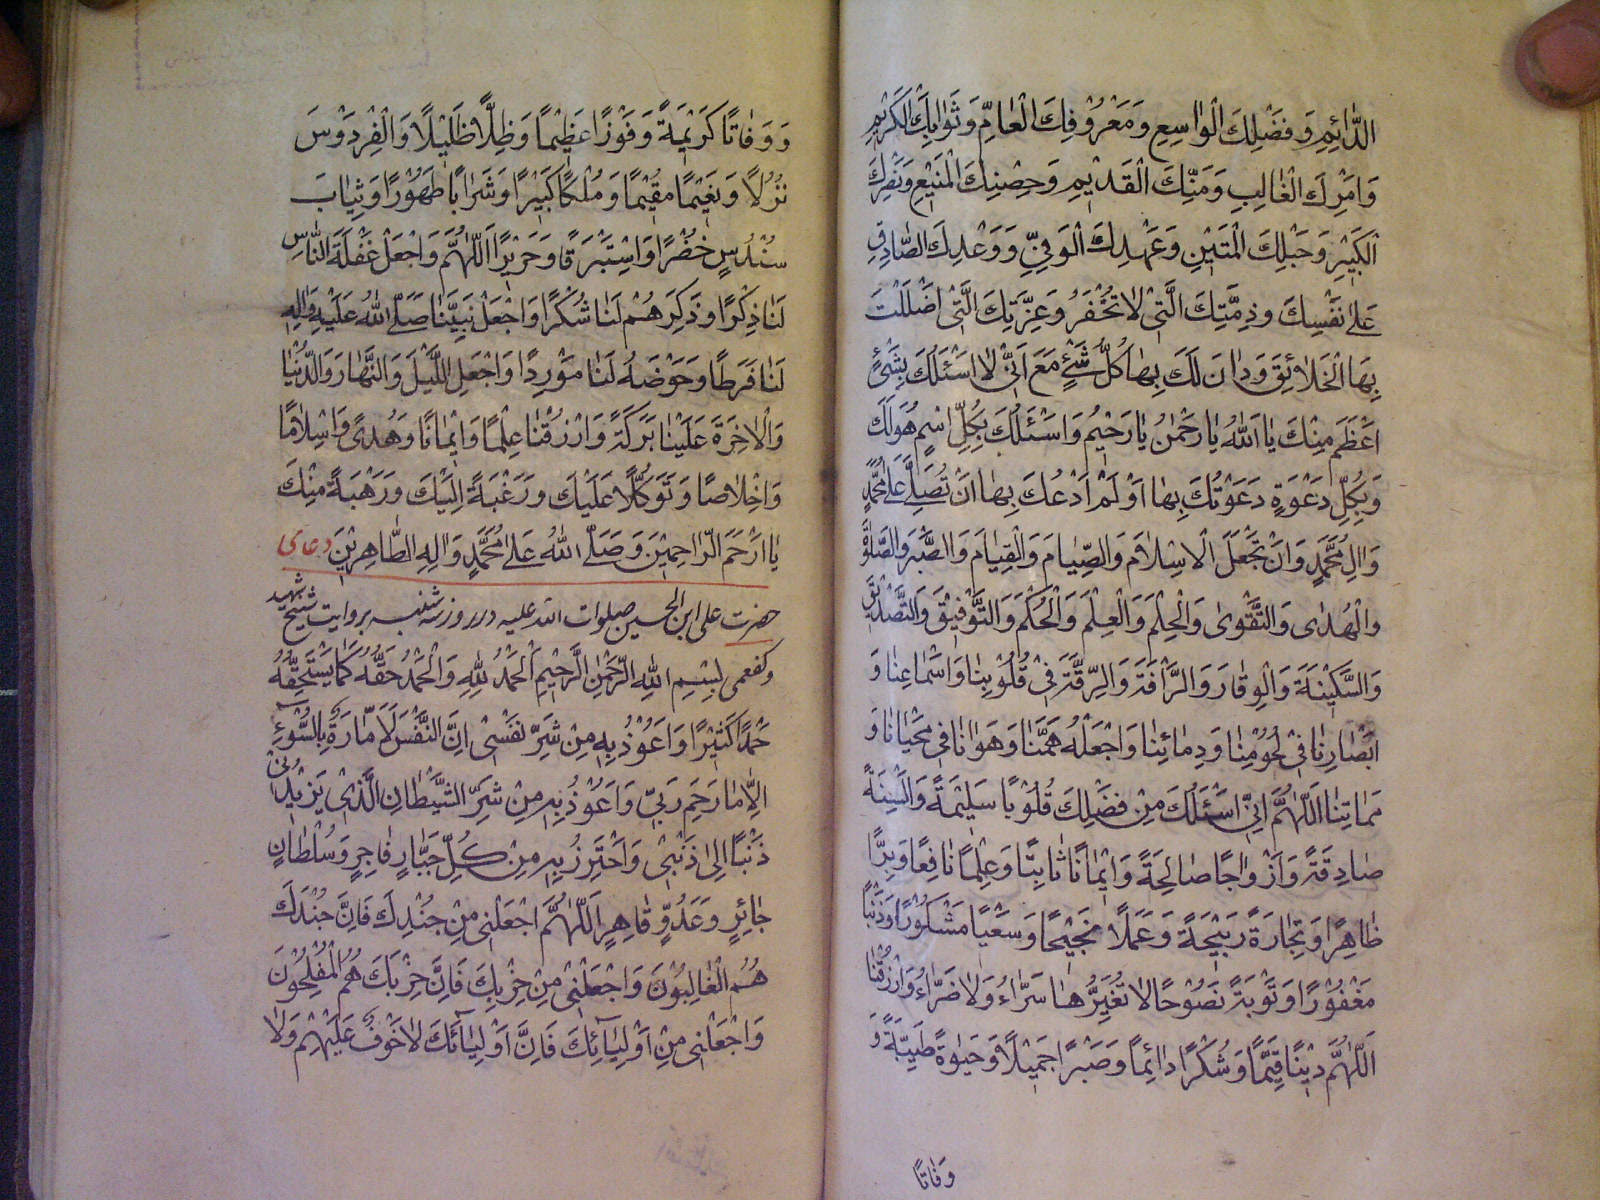 الدَّائِمِ وَ فَضْلِكَ الْوَاسِعِ وَ مَعْرُوْفِكَ الْعَامِّ وَ ثَوَابِكَ الْكَرِيْمِ
وَ اَمْرِكَ الْغَالِبِ وَ مَنِّكَ الْقَدِيْمِ وَ حِصْنِكَ الْمَنِيْعِ وَ نَصْرِكَ
الْكَبِيْرِ وَ حَبْلِكَ الْمَتِيْنِ وَ عَهْدِكَ الْوَفِيِّ وَ وَعْدِكَ الصَّادِقِ
عَلٰى نَفْسِكَ وَ ذِمَّتِكَ الَّتِيْ لَا تُخْفَرُ وَ عِزَّتِكَ الَّتِيْ اَضْلَلْتَ
بِهَا الْخَلَائِقَ وَ دَانَ لَكَ بِهَا كُلُّ شَيْءٍ مَعَ اَنِّيْ لَا اَسْئَلُكَ بِشَيْءٍ
اَعْظَمَ مِنْكَ يَا اَللّٰهُ يَا رَحْمٰنُ يَا رَحِيْمُ وَ اَسْئَلُكَ بِكُلِّ اسْمٍ هُوَ لَكَ
وَ بِكُلِّ دَعْوَةٍ دَعَوْتُكَ بِهَا اَوْ لَمْ اَدْعُكَ بِهَا اَنْ تُصَلِّيَ عَلٰى مُحَمَّدٍ
وَ اٰلِ مُحَمَّدٍ وَ اَنْ تَجْعَلَ الْاِسْلَامَ وَ الصِّيَامَ وَ الْقِيَامَ وَ الصَّبْرَ وَ الصَّلٰوةَ
وَ الْهُدٰى وَ التَّقْوٰى وَ الْحِلْمَ وَ الْعِلْمَ وَ الْحُكْمَ وَ التَّوْفِيْقَ وَ التَّصْدِيْقَ
وَ السَّكِيْنَةَ وَ الْوَقَارَ وَ الرَّافَةَ وَ الرِّقَّةَ فِيْ قُلُوْبِنَا وَ اَسْمَاعِنَا وَ
اَبْصَارِنَا فِيْ لُحُوْمِنَا وَ دِمَائِنَا وَ اجْعَلْهُ هَمَّنَا وَ هَوَانَا فِيْ مَحْيَانَا وَ
مَمَاتِنَا اَللّٰهُمَّ اِنِّيْ اَسْئَلُكَ مِنْ فَضْلِكَ قُلُوْبًا سَلِيْمَةً وَ اَلْسِنَةً
صَادِقَةً وَ اَزْوَاجًا صَالِحَةً وَ اِيْمَانًا ثَابِتًا وَ عِلْمًا نَافِعًا وَ بِرًّا
ظَاهِرًا وَ تِجَارَةً رَبِيْحَةً وَ عَمَلًا نَجِيْحًا وَ سَعْيًا مَشْكُوْرًا وَ ذَنْبًا
مَغْفُوْرًا وَ تَوْبَةً نَصُوْحًا لَا تُغَيِّرُهَا سَرَّاءُ وَ لَا ضَرَّاءُ وَ ارْزُقْنَا
اَللّٰهُمَّ دِيْنًا قَيِّمًا وَ شُكْرًا دَائِمًا وَ صَبْرًا جَمِيْلًا وَ حَيٰوةً طَيِّبَةً وَ
وَفَاتًا
وَ وَفَاتًا كَرِيْمَةً وَ فَوْزًا عَظِيْمًا وَ ظِلًّا ظَلِيْلًا وَ الْفِرْدَوْسَ
نُزُلًا وَ نَعِيْمًا مُقِيْمًا وَ مُلْكًا كَبِيْرًا وَ شَرَابًا طَهُوْرًا وَ ثِيَابَ
سُنْدُسٍ خُضْرًا وَ اِسْتَبْرَقًا وَ حَرِيْرًا اَللّٰهُمَّ وَ اجْعَلْ غَفْلَةَ النَّاسِ
لَنَا ذِكْرًا وَ ذَكِّرْهُمْ لَنَا شُكْرًا وَ اجْعَلْ نَبِيَّنَا صَلَّى اللّٰهُ عَلَيْهِ وَ اٰلِهِ
لَنَا فَرَطًا وَ حَوْضَهُ لَنَا مَوْرِدًا وَ اجْعَلِ اللَّيْلَ وَ النَّهَارَ وَ الدُّنْيَا
وَ الْاٰخِرَةَ عَلَيْنَا بَرَكَةً وَ ارْزُقْنَا عِلْمًا وَ اِيْمَانًا وَ هُدًى وَ اِسْلَامًا
وَ اِخْلَاصًا وَ تَوَكُّلًا عَلَيْكَ وَ رَغْبَةً اِلَيْكَ وَ رَهْبَةً مِنْكَ
يَا اَرْحَمَ الرَّاحِمِيْنَ وَ صَلَّى اللّٰهُ عَلٰى مُحَمَّدٍ وَ اٰلِهِ الطَّاهِرِيْنَ دعای
حضرت علی ابن الحسین صلوات الله علیه در روز سه شنبه بروایت شیخ شهید
و کفعمی بِسْمِ اللّٰهِ الرَّحْمٰنِ الرَّحِيْمِ اَلْحَمْدُ لِلّٰهِ وَ الْحَمْدُ حَقُّهُ كَمَا يَسْتَحِقُّهُ
حَمْدًا كَثِيْرًا وَ اَعُوْذُ بِهِ مِنْ شَرِّ نَفْسِيْ اِنَّ النَّفْسَ لَاَمَّارَةٌ بِالسُّوْءِ
اِلَّا مَا رَحِمَ رَبِّيْ وَ اَعُوْذُ بِهِ مِنْ شَرِّ الشَّيْطَانِ الَّذِيْ يَزِيْدُنِيْ
ذَنْبًا اِلٰى ذَنْبِيْ وَ اَحْتَرِزُ بِهِ مِنْ كُلِّ جَبَّارٍ فَاجِرٍ وَ سُلْطَانٍ
جَائِرٍ وَ عَدُوٍّ قَاهِرٍ اَللّٰهُمَّ اجْعَلْنِيْ مِنْ جُنْدِكَ فَاِنَّ جُنْدَكَ
هُمُ الْغَالِبُوْنَ وَ اجْعَلْنِيْ مِنْ حِزْبِكَ فَاِنَّ حِزْبَكَ هُمُ الْمُفْلِحُوْنَ
وَ اجْعَلْنِيْ مِنْ اَوْلِيَائِكَ فَاِنَّ اَوْلِيَائَكَ لَا خَوْفٌ عَلَيْهِمْ وَ لَا